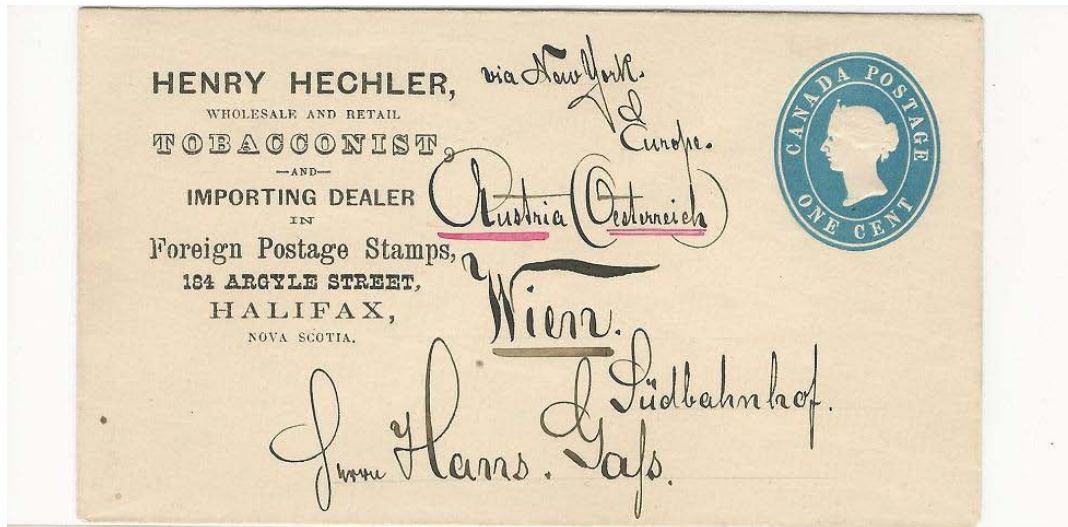 HENRY HECHLER,
WHOLESALE AND RETAIL
TOBACCONIST,
—AND—
IMPORTING DEALER
IN
Foreign Postage Stamps,
184 ARGYLE STREET,
HALIFAX,
NOVA SCOTIA.
via New York.
Europe.
Austria (Oesterreich)
Wien.
Südbahnhof.
Herrn Hans. Gaſs.
CANADA POSTAGE
ONE CENT